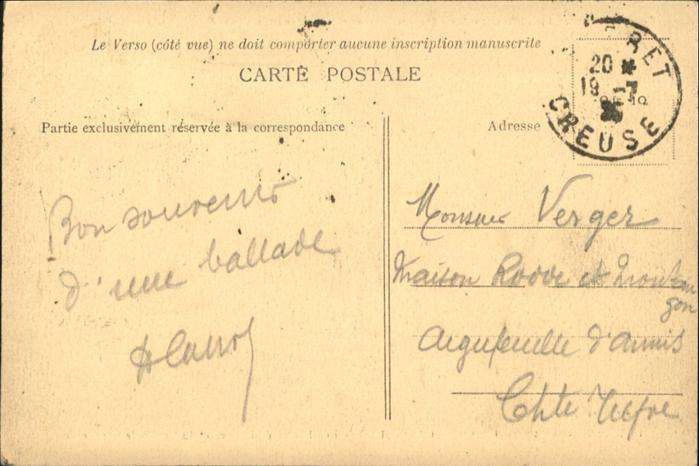 Le Verso (côté vue) ne doit comporter aucune inscription manuscrite
CARTE POSTALE
RET
20 *
19 -7
CREUSE
Partie exclusivement réservée à la correspondance
Adresse
Bon souvenir
d'une ballade
Monsieur Verger
Maison et
Aigrefeuille d'Aunis
Chte Infre